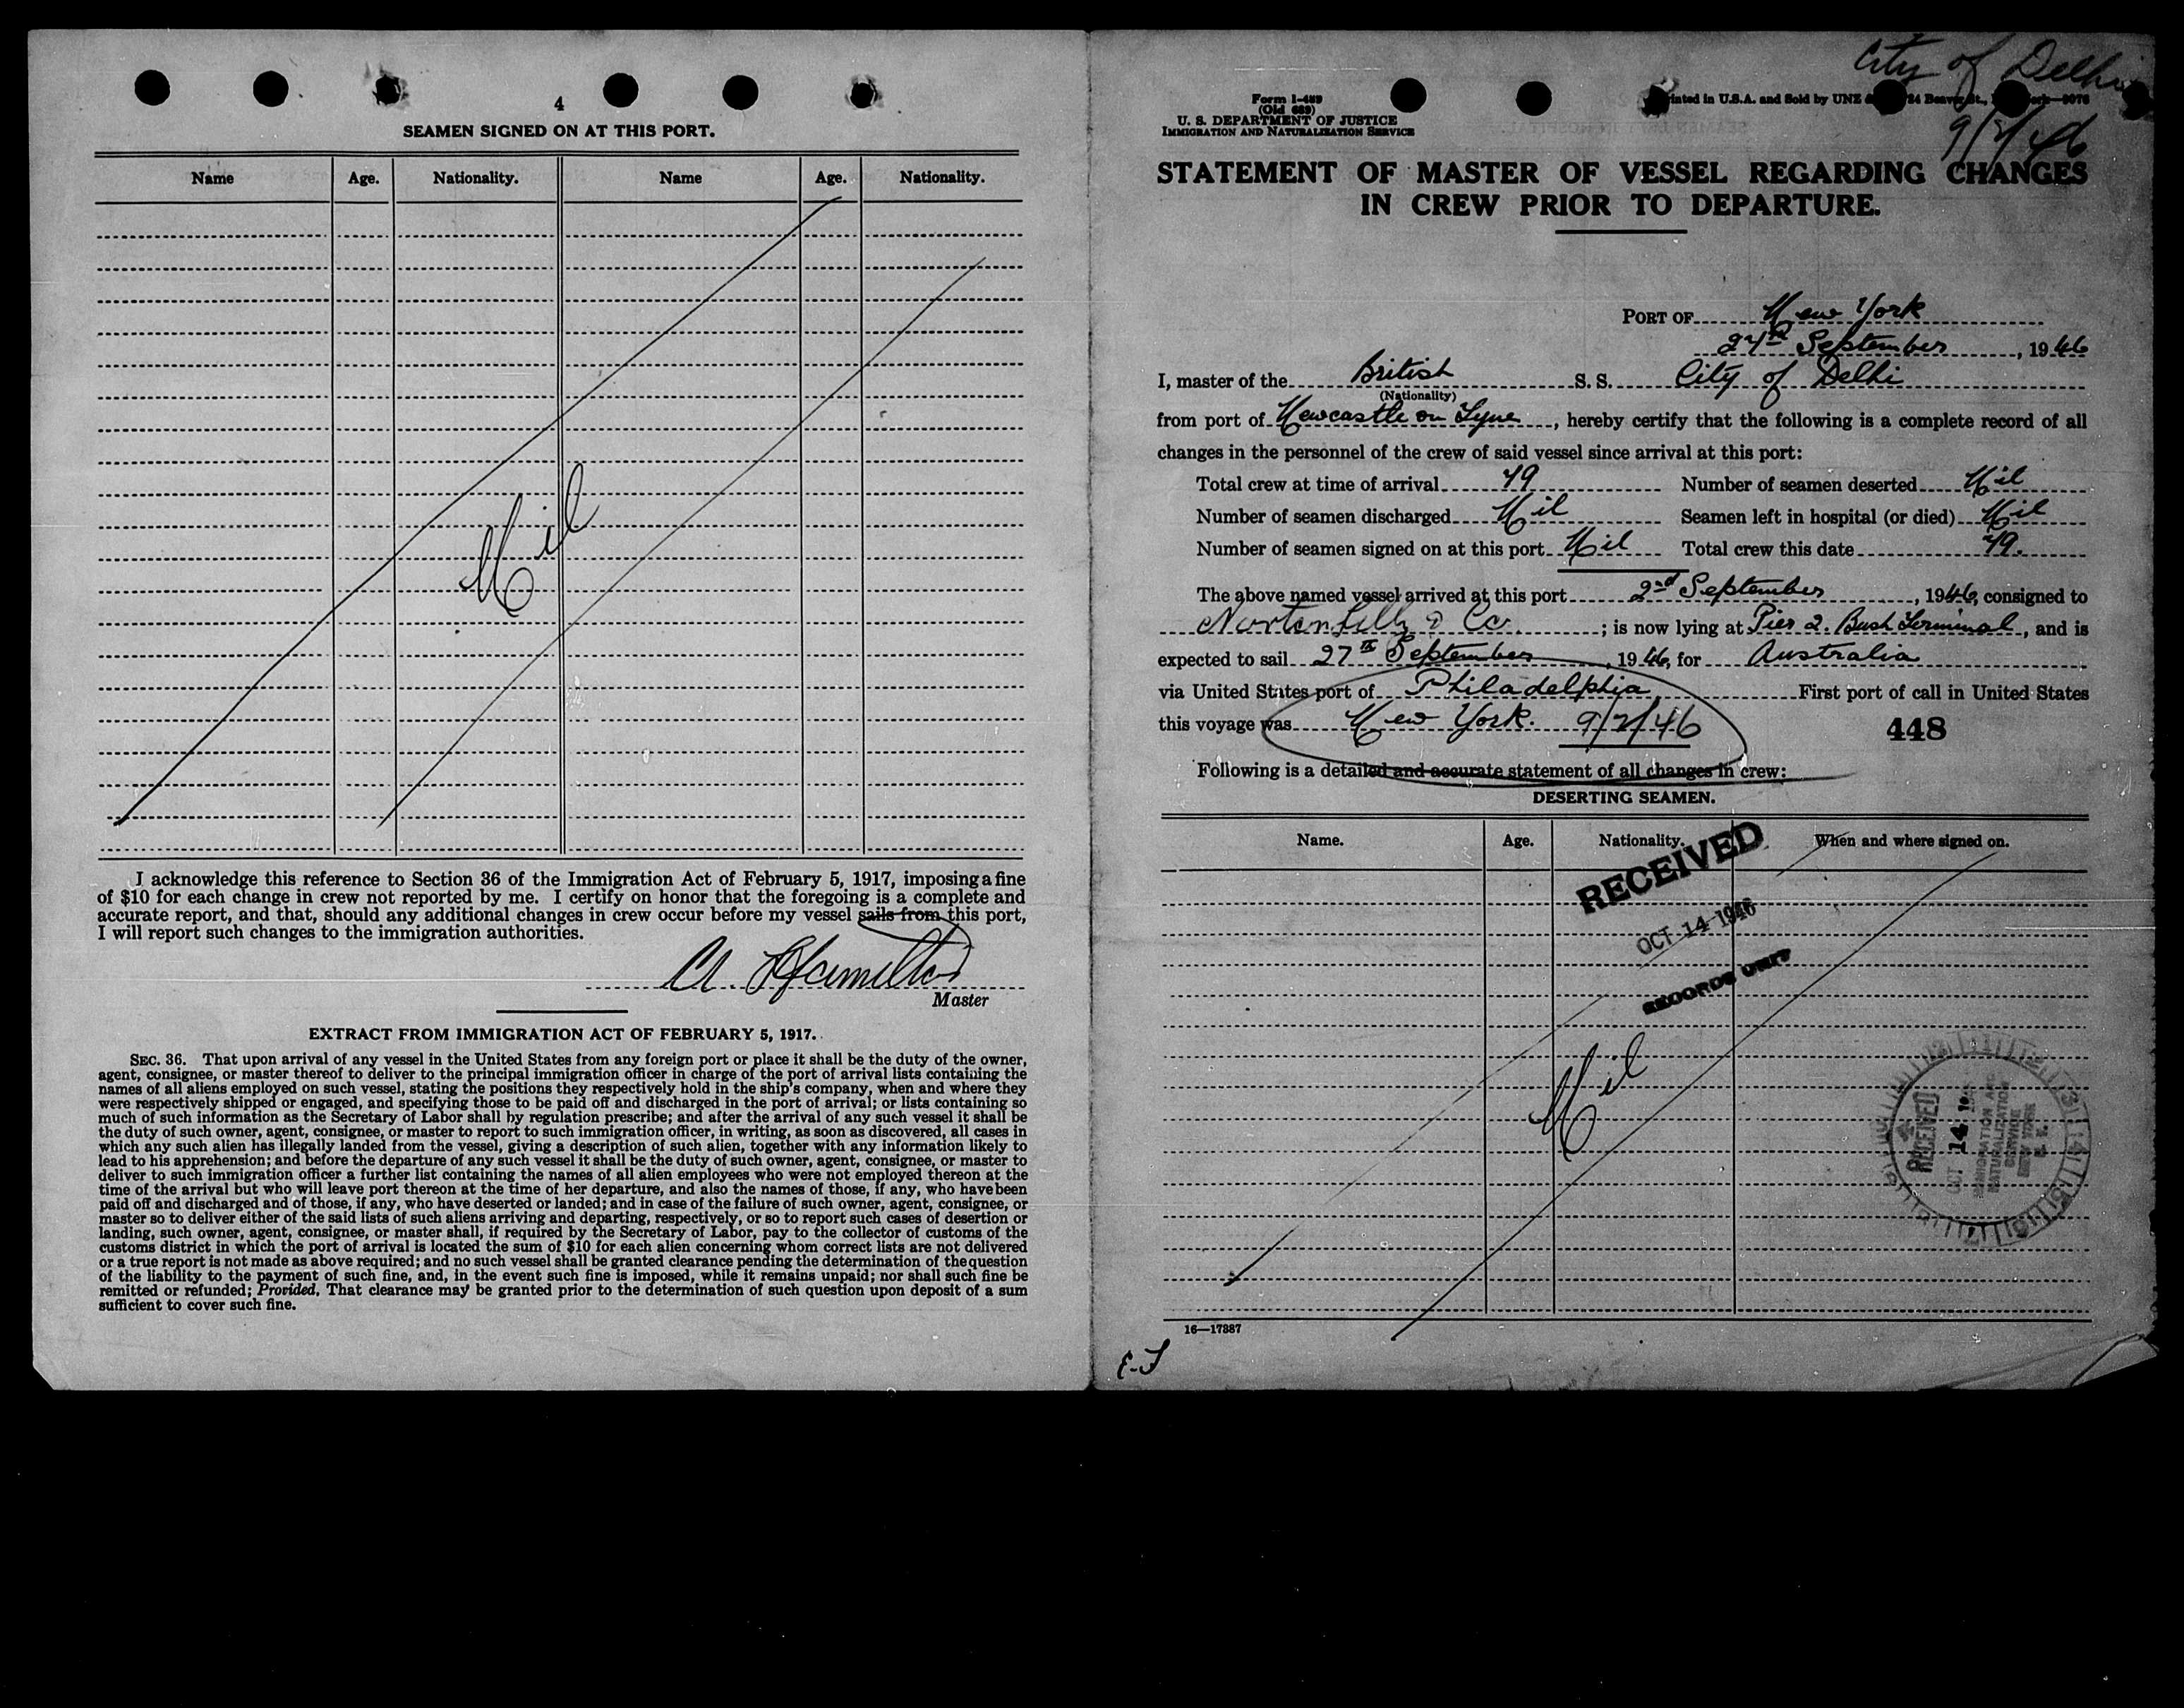 4
SEAMEN SIGNED ON AT THIS PORT.
Name Age. Nationality. Name Age. Nationality.
Nil
I acknowledge this reference to Section 36 of the Immigration Act of February 5, 1917, imposing a fine
of $10 for each change in crew not reported by me. I certify on honor that the foregoing is a complete and
accurate report, and that, should any additional changes in crew occur before my vessel sails from this port,
I will report such changes to the immigration authorities.
A. Hamilton
Master
EXTRACT FROM IMMIGRATION ACT OF FEBRUARY 5, 1917.
SEC. 36. That upon arrival of any vessel in the United States from any foreign port or place it shall be the duty of the owner,
agent, consignee, or master thereof to deliver to the principal immigration officer in charge of the port of arrival lists containing the
names of all aliens employed on such vessel, stating the positions they respectively hold in the ship's company, when and where they
were respectively shipped or engaged, and specifying those to be paid off and discharged in the port of arrival; or lists containing so
much of such information as the Secretary of Labor shall by regulation prescribe; and after the arrival of any such vessel it shall be
the duty of such owner, agent, consignee, or master to report to such immigration officer, in writing, as soon as discovered, all cases in
which any such alien has illegally landed from the vessel, giving a description of such alien, together with any information likely to
lead to his apprehension; and before the departure of any such vessel it shall be the duty of such owner, agent, consignee, or master to
deliver to such immigration officer a further list containing the names of all alien employees who were not employed thereon at the
time of the arrival but who will leave port thereon at the time of her departure, and also the names of those, if any, who have been
paid off and discharged and of those, if any, who have deserted or landed; and in case of the failure of such owner, agent, consignee, or
master so to deliver either of the said lists of such aliens arriving and departing, respectively, or so to report such cases of desertion or
landing, such owner, agent, consignee, or master shall, if required by the Secretary of Labor, pay to the collector of customs of the
customs district in which the port of arrival is located the sum of $10 for each alien concerning whom correct lists are not delivered
or a true report is not made as above required; and no such vessel shall be granted clearance pending the determination of the question
of the liability to the payment of such fine, and, in the event such fine is imposed, while it remains unpaid; nor shall such fine be
remitted or refunded; Provided, That clearance may be granted prior to the determination of such question upon deposit of a sum
sufficient to cover such fine.
City of Delhi
9/2/46
Form I-489
(Old 689)
U. S. DEPARTMENT OF JUSTICE
IMMIGRATION AND NATURALIZATION SERVICE
Printed in U.S.A. and Sold by UNZ & 24 Beaver St., 9076
STATEMENT OF MASTER OF VESSEL REGARDING CHANGES
IN CREW PRIOR TO DEPARTURE.
PORT OF New York
24th September, 1946
I, master of the British S. S. City of Delhi
(Nationality)
from port of Newcastle on Tyne, hereby certify that the following is a complete record of all
changes in the personnel of the crew of said vessel since arrival at this port:
Total crew at time of arrival 79 Number of seamen deserted Nil
Number of seamen discharged Nil Seamen left in hospital (or died) Nil
Number of seamen signed on at this port Nil Total crew this date 79.
The above named vessel arrived at this port 2nd September, 1946, consigned to
Norton Lilly & Co.; is now lying at Pier 2. Bush Terminal, and is
expected to sail 27th September, 1946, for Australia
via United States port of Philadelphia First port of call in United States
this voyage was New York. 9/2/46 448
Following is a detailed and accurate statement of all changes in crew:
DESERTING SEAMEN.
Name. Age. Nationality. When and where signed on.
RECEIVED
OCT 14 1946
RECORDS UNIT
Nil
RECEIVED
OCT 14
IMMIGRATION AND
NATURALIZATION
SERVICE
NEW YORK
N. Y.
16—17387
E-J